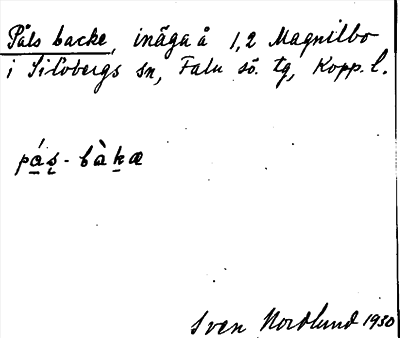 Påls backe, inäga å 1,2 Magnilbo
i Silvbergs sn, Falu sö. tg, Kopp. l.
pá̱s̨-bàḵæ
Sven Nordlund 1930